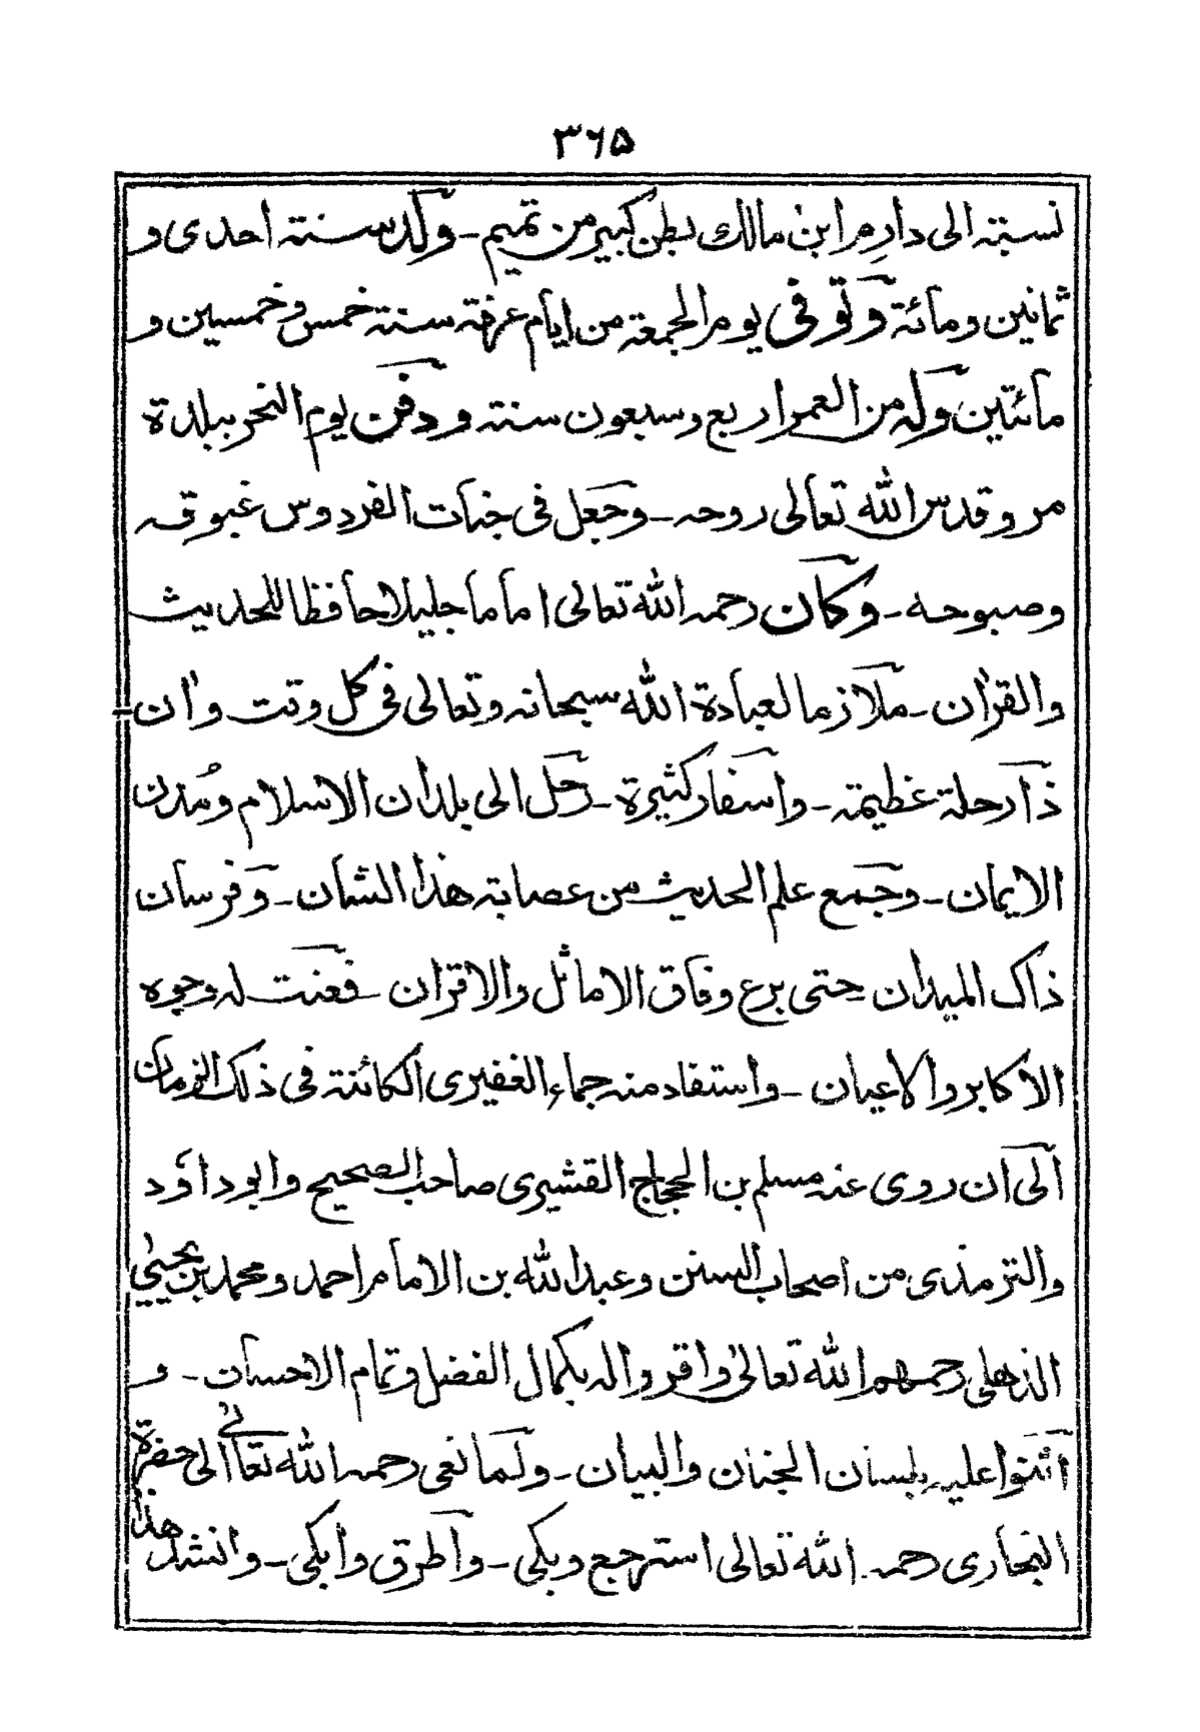 ۳۶۵
نسبتہ الی دارم ابن مالك بطن كبير من تميم ـ وولد سنتہ احدی و
ثمانین ومائة وتوفی يوم الجمعتہ من ايام عرفتہ سنتہ خمس وخمسين و
مائتين ولہ من العمر اربع وسبعون سنتہ ودفن يوم النحر ببلدة
مرو قدس الله تعالی روحہ ـ وجعل فی جنات الفردوس غبوقہ
وصبوحہ ـ وكان رحمہ الله تعالی اماما جليلا حافظا للحديث
والقرٰان ـ ملازما لعبادة الله سبحانہ وتعالی فی كل وقت وان
ذا رحلة عظيمتہ ـ واسفار كثيرة ـ رحل الی بلدان الاسلام ومُدن
الايمان ـ وجمع علم الحديث من عصابتہ هذا الشان ـ وفرسان
ذاك الميدان حتی برع وفاق الاماثل والاقران ـ فعنت لہ وجوه
الاكابر والاعيان ـ واستفاد منہ جماء الغفيری الكائنتہ فی ذلك الزمان
الی ان روی عنہ مسلم بن الحجاج القشيری صاحب الصحيح وابو داؤد
والترمذی من اصحاب السنن وعبد الله بن الامام احمد ومحمد بن يحيیٰ
الذهلی رحمهم الله تعالیٰ واقروا لہ بكمال الفضل وتمام الاحسان ـ و
اثنوا عليہ بلسان الجنان والبيان ـ ولما نعی رحمہ الله تعالیٰ الی حضرة
البخاری رحمہ الله تعالی استرجع وبكی ـ واطرق وابكی ـ وانشد هذا